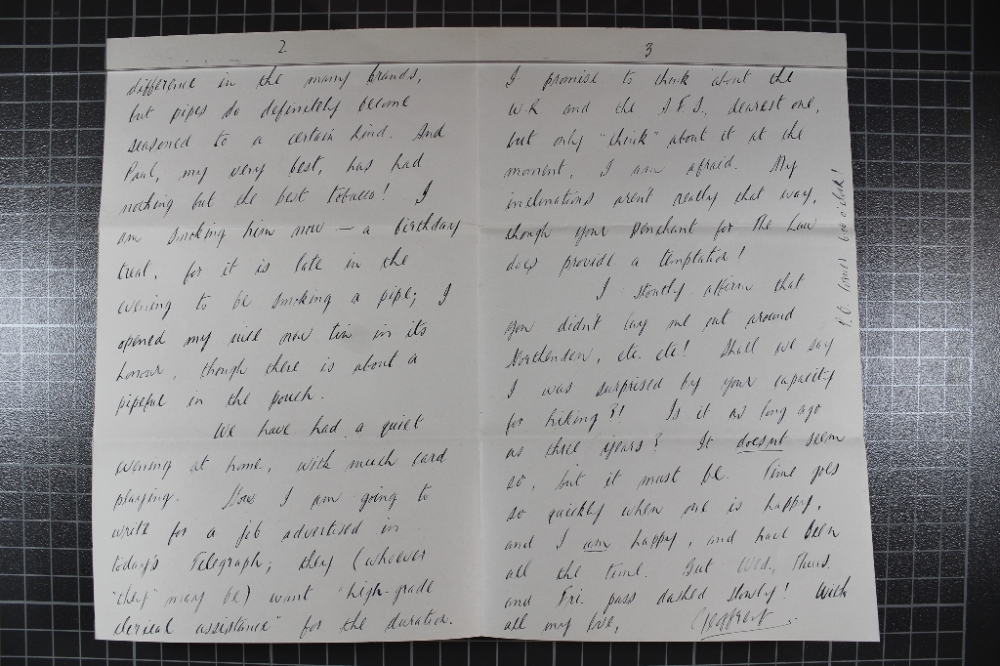 2
difference in the many brands,
but pipes do definitely become
seasoned to a certain kind. And
Paul, my very best, has had
nothing but the best tobacco! I
am smoking him now — a birthday
treat, for it is late in the
evening to be smoking a pipe; I
opened my nice new tin in its
honour, though there is about a
pipeful in the pouch.
We have had a quiet
evening at home, with much card
playing. Now I am going to
write for a job advertised in
today's Telegraph; they (whoever
"they" may be) want "high-grade
clerical assistance" for the duration.
3
I promise to think about the
W.R and the I.F.S., dearest one,
but only "think" about it at the
moment, I am afraid. My
inclinations aren't really that way,
though your penchant for The Law
does provide a temptation!
I stoutly affirm that
you didn't lug me out around
Northenden, etc. etc! Shall we say
I was surprised by your capacity
for hiking?! Is it as long ago
as three years? It doesn't seem
so, but it must be. Time goes
so quickly when one is happy,
and I am happy, and have been
all the time. But Wed., Thurs.
and Fri. pass dashed slowly! With
all my love, Geoffrey
o'clock!